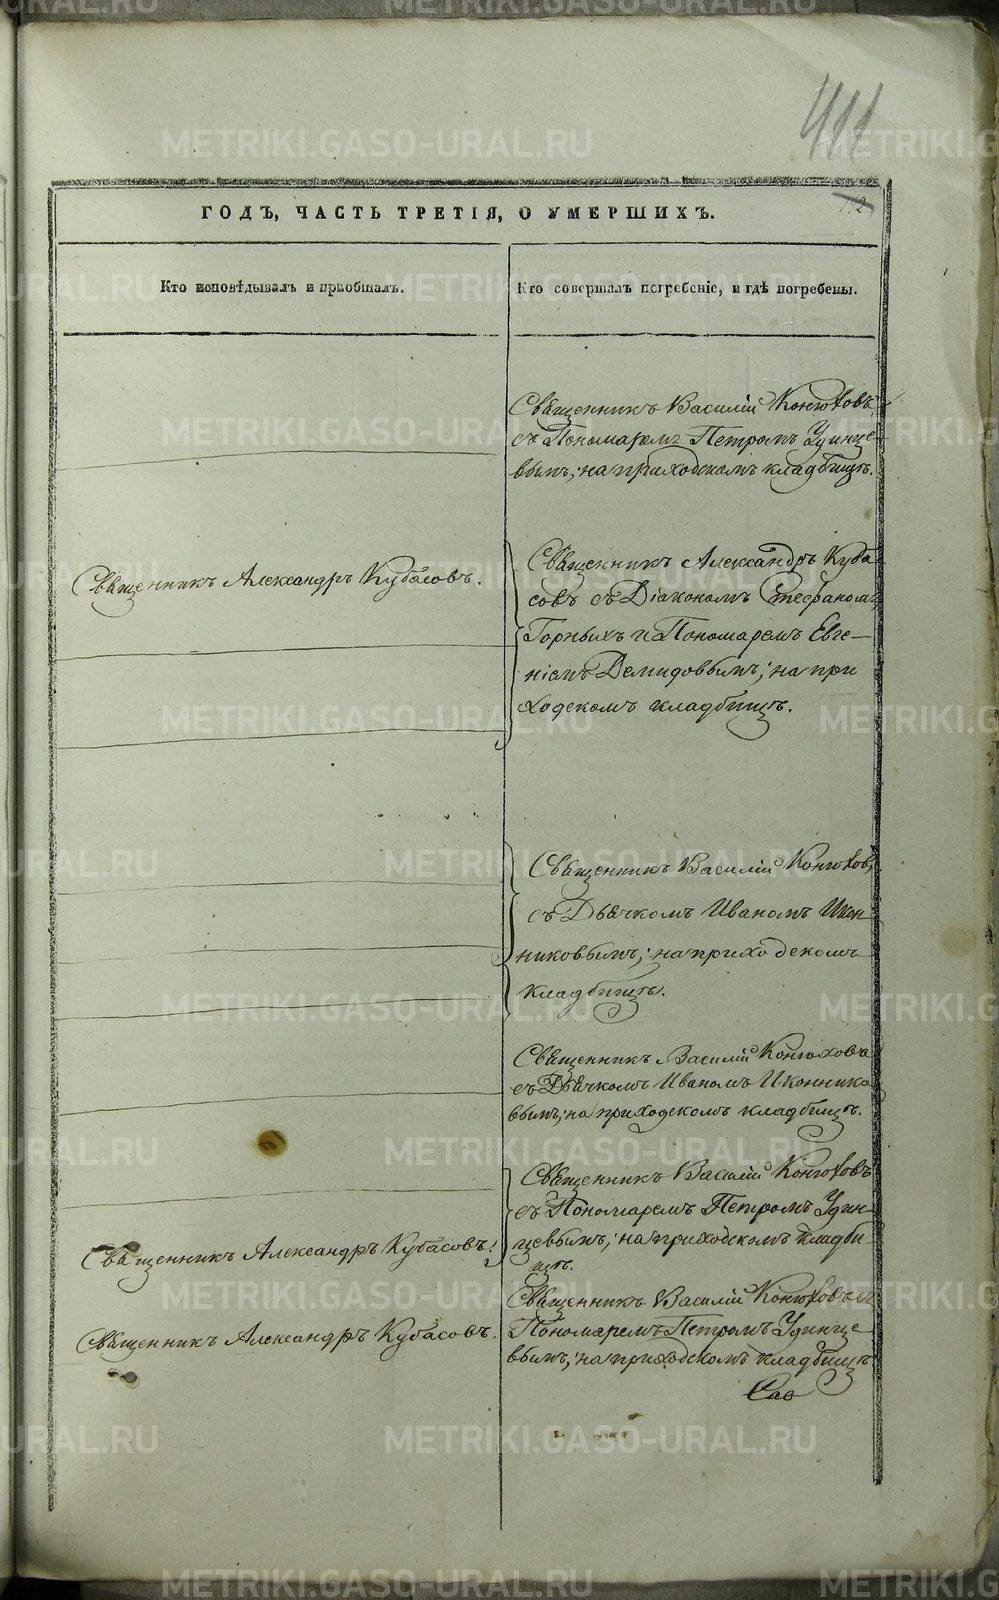 411
112
ГОДЪ, ЧАСТЬ ТРЕТІЯ, О УМЕРШИХЪ.
Кто исповѣдывалъ и пріобщалъ.
Кто совершалъ погребеніе, и гдѣ погребены.
Священникъ Василій Конюховъ
съ Пономаремъ Петромъ Удинце-
вымъ, на приходскомъ кладбищѣ.
Священникъ Александръ Кубасовъ.
Священникъ Александръ Куба
совъ съ Діакономъ Стефаномъ
Горныхъ и Пономаремъ Евге-
ніемъ Демидовымъ; на при
ходскомъ кладбищѣ.
Священникъ Василій Конюховъ,
съ Дьячкомъ Иваномъ Икон-
никовымъ; на приходскомъ
кладбищѣ.
Священникъ Василій Конюховъ
съ Дьячкомъ Иваномъ Иконнико
вымъ; на приходскомъ кладбищѣ.
Священникъ Василій Конюховъ
съ Пономаремъ Петромъ Удин-
цевымъ; на приходскомъ кладби-
щѣ.
Священникъ Александръ Кубасовъ.
Священникъ Василій Конюховъ съ
Пономаремъ Петромъ Удинце
вымъ; на приходскомъ кладбищѣ
Священникъ Александръ Кубасовъ.
Сав
METRIKI.GASO-URAL.RU